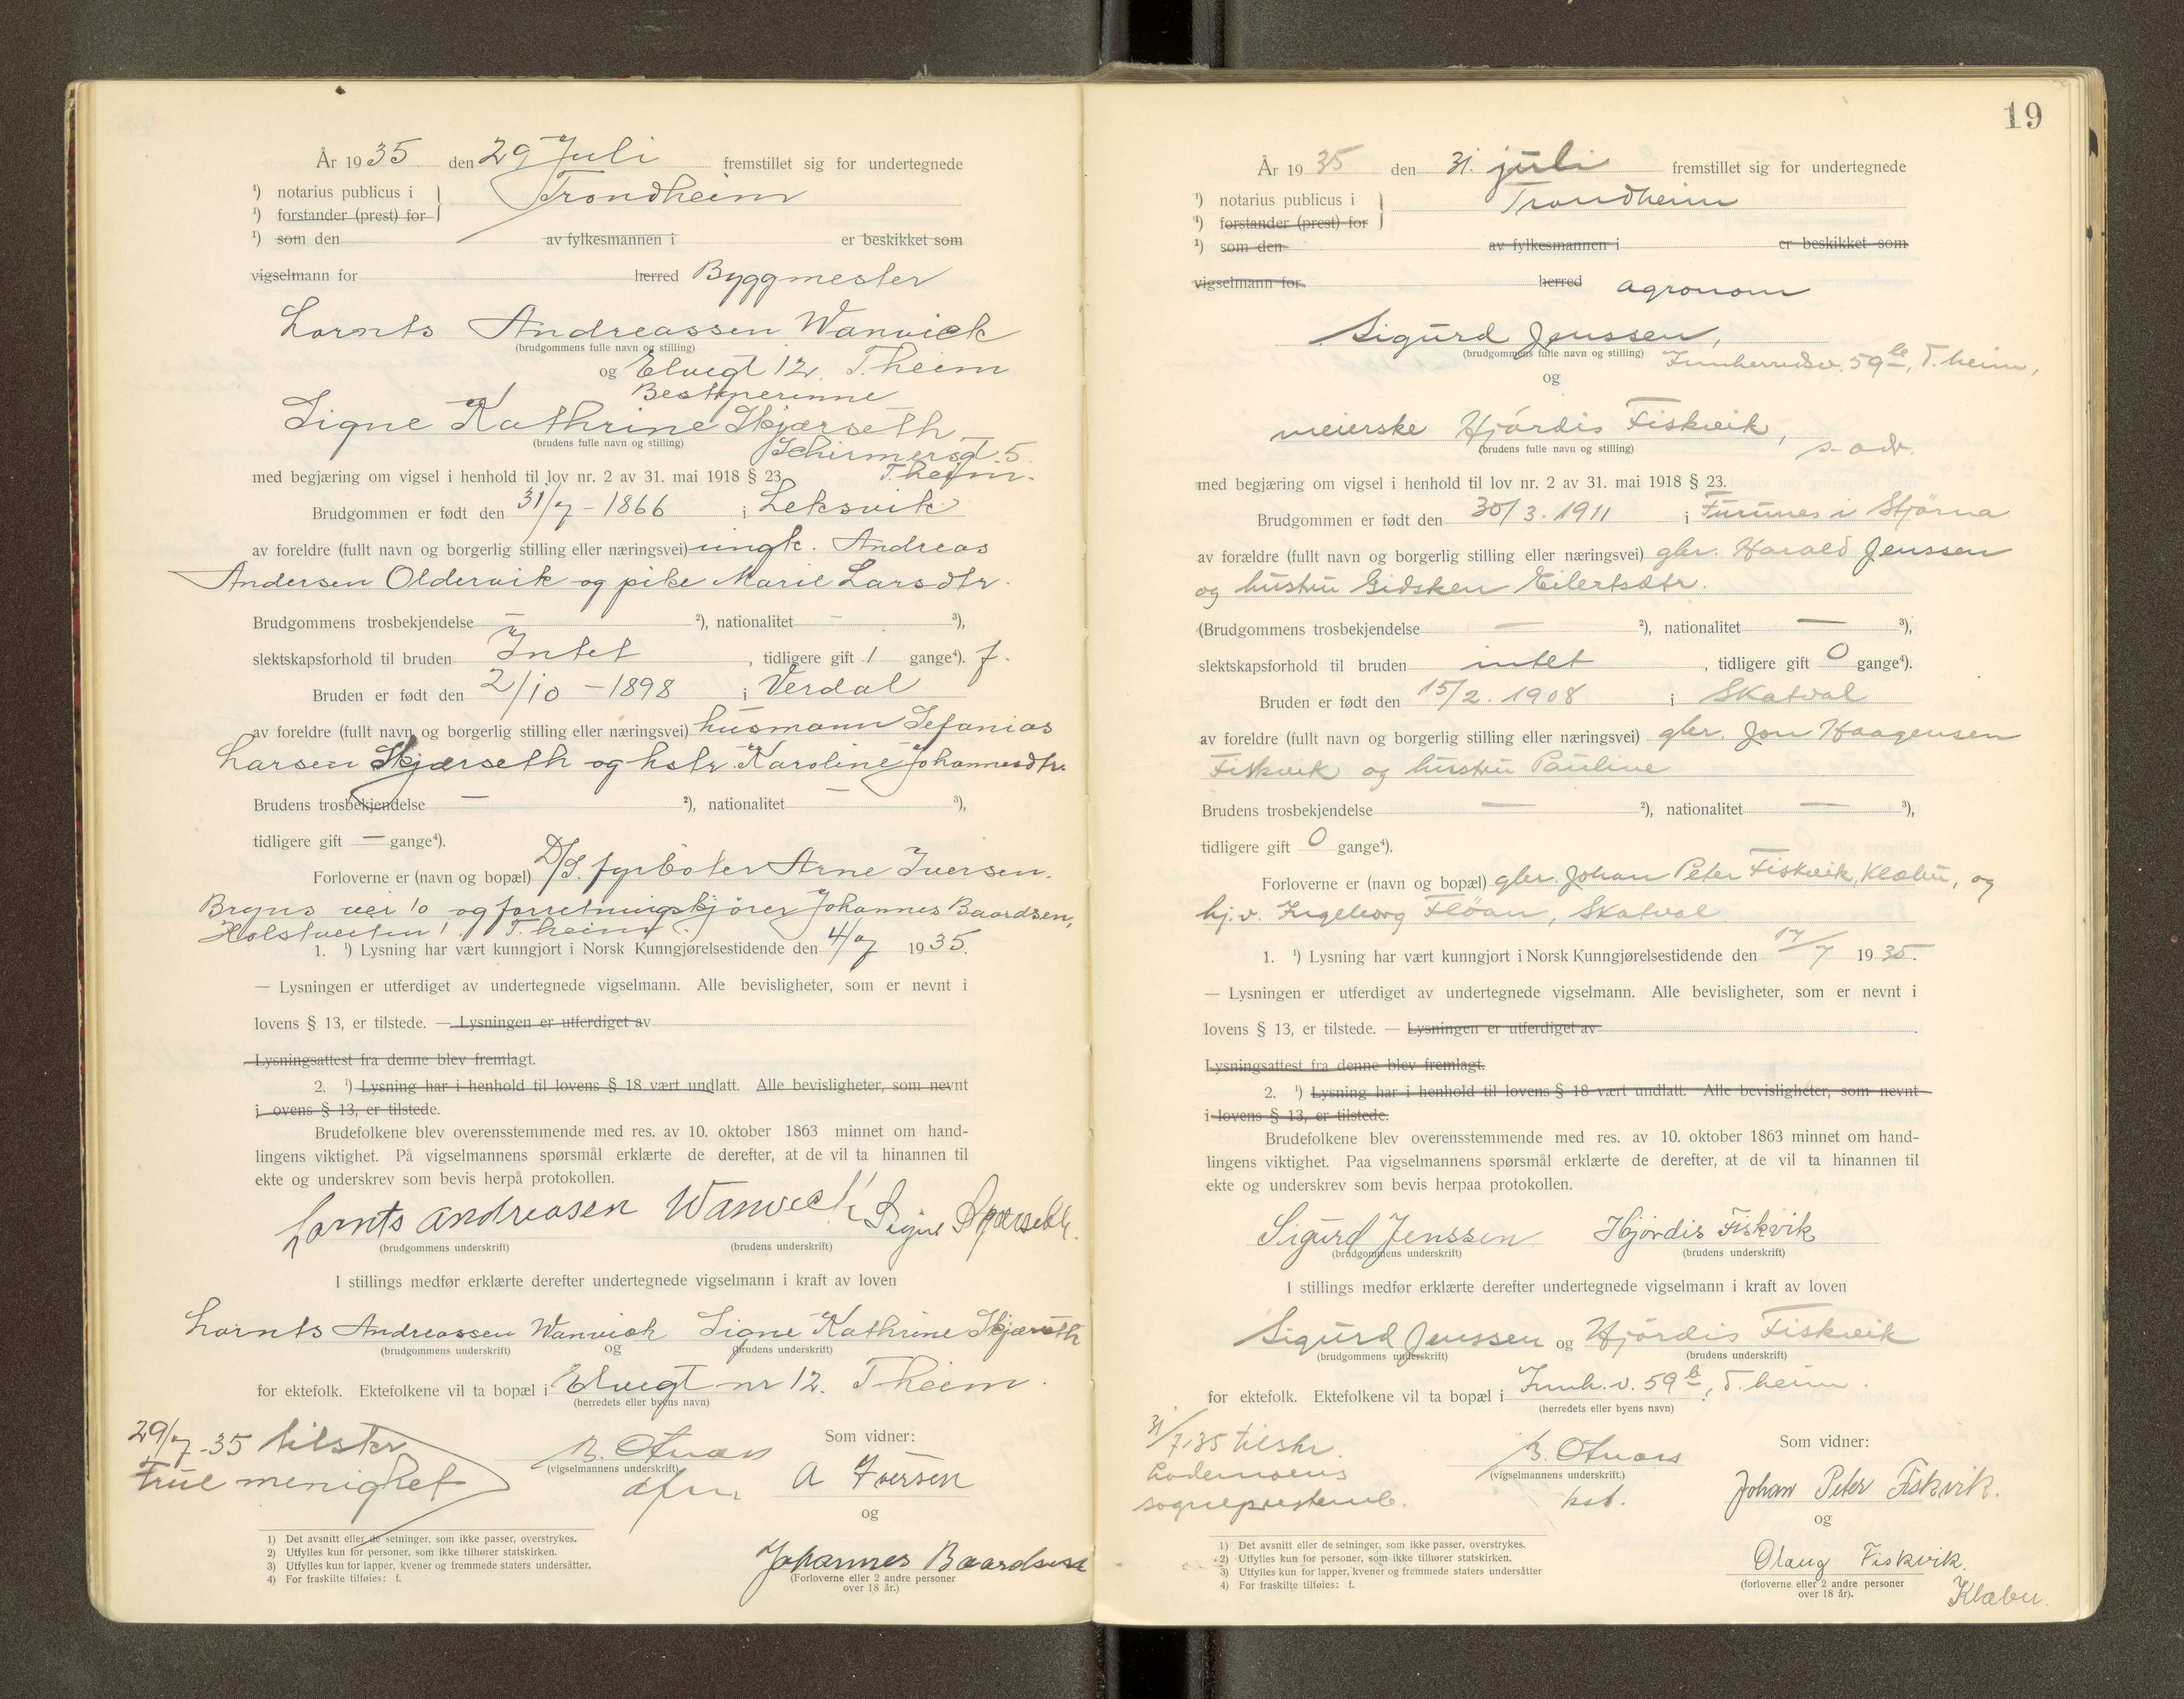 År 1935 den 29 Juli fremstillet sig for undertegnede
¹) notarius publicus i Trondheim
¹) forstander (prest) for
¹) som den av fylkesmannen i er beskikket som
vigselmann for herred Byggmester
Lornts Andreassen Wanvick
(brudgommens fulle navn og stilling)
og Elvegt 12, T.heim
Bestyrerinne
Signe Kathrine Skjærseth
(brudens fulle navn og stilling)
Schirmersgt. 5
T.heim.
med begjæring om vigsel i henhold til lov nr. 2 av 31. mai 1918 § 23
Brudgommen er født den 31/7 - 1866 i Leksvik
av foreldre (fullt navn og borgerlig stilling eller næringsvei) ungk. Andreas
Andersen Oldervik og pike Marie Larsdtr.
Brudgommens trosbekjendelse — ²), nationalitet — ³),
slektskapsforhold til bruden Intet, tidligere gift 1 gange⁴). f.
Bruden er født den 2/10 - 1898 i Verdal
av foreldre (fullt navn og borgerlig stilling eller næringsvei) husmann Sefanias
Larsen Skjærseth og hstr. Karoline Johannesdtr.
Brudens trosbekjendelse — ²), nationalitet — ³),
tidligere gift — gange⁴).
Forloverne er (navn og bopæl) D/S. fyrbøter Arne Iversen.
Brøns vei 10 og forretningskjører Johannes Baardsen,
T.heim
1. ¹) Lysning har vært kunngjort i Norsk Kunngjørelsestidende den 4/7 1935.
— Lysningen er utferdiget av undertegnede vigselmann. Alle bevisligheter, som er nevnt i
lovens § 13, er tilstede. — Lysningen er utferdiget av
Lysningsattest fra denne blev fremlagt.
2. ¹) Lysning har i henhold til lovens § 18 vært undlatt. Alle bevisligheter, som nevnt
i ovens § 13, er tilstede.
Brudefolkene blev overensstemmende med res. av 10. oktober 1863 minnet om hand-
lingens viktighet. På vigselmannens spørsmål erklærte de derefter, at de vil ta hinannen til
ekte og underskrev som bevis herpå protokollen.
Lornts Andreasen Wanvick Signe Skjærseth.
(brudgommens underskrift) (brudens underskrift)
I stillings medfør erklærte derefter undertegnede vigselmann i kraft av loven
Lornts Andreassen Wanvick Signe Kathrine Skjærseth
(brudgommens underskrift) og (brudens underskrift)
for ektefolk. Ektefolkene vil ta bopæl i Elvegt nr 12. T.heim.
(herredets eller byens navn)
29/7-35 tilskr.
Frue menighet
(vigselmannens underskrift)
Som vidner:
A Iversen
og
Johannes Baardsen
(Forloverne eller 2 andre personer
over 18 år.)
1) Det avsnitt eller de setninger, som ikke passer, overstrykes.
2) Utfylles kun for personer, som ikke tilhører statskirken.
3) Utfylles kun for lapper, kvener og fremmede staters undersåtter.
4) For fraskilte tilføies: f.
19
År 1935 den 31. juli fremstillet sig for undertegnede
¹) notarius publicus i Trondheim
¹) forstander (prest) for
¹) som den av fylkesmannen i er beskikket som
vigselmann for herred agronom
Sigurd Jenssen,
(brudgommens fulle navn og stilling) Innherredsv. 59 b, T.heim,
og
meierske Hjördis Fiskvik,
(brudens fulle navn og stilling) s. adr.
med begjæring om vigsel i henhold til lov nr. 2 av 31. mai 1918 § 23.
Brudgommen er født den 30/3. 1911 i Furunes i Stjørna
av forældre (fullt navn og borgerlig stilling eller næringsvei) gbr. Harald Jenssen
og hustru Gidsken Eilertsdtr.
(Brudgommens trosbekjendelse — ²), nationalitet — ³),
slektskapsforhold til bruden intet, tidligere gift 0 gange⁴).
Bruden er født den 15/2. 1908 i Skatval
av foreldre (fullt navn og borgerlig stilling eller næringsvei) gbr. Jon Haagensen
Fiskvik og hustru Pauline
Brudens trosbekjendelse — ²), nationalitet — ³),
tidligere gift 0 gange⁴).
Forloverne er (navn og bopæl) gbr. Johan Peter Fiskvik, Klæbu, og
hj.v. Ingeborg Fløan, Skatval
1. ¹) Lysning har vært kunngjort i Norsk Kunngjørelsestidende den 17/7 1935.
— Lysningen er utferdiget av undertegnede vigselmann. Alle bevisligheter, som er nevnt i
lovens § 13, er tilstede. — Lysningen er utferdiget av .
Lysningsattest fra denne blev fremlagt.
2. ¹) Lysning har i henhold til lovens § 18 vært undlatt. Alle bevisligheter, som nevnt
i lovens § 13, er tilstede.
Brudefolkene blev overensstemmende med res. av 10. oktober 1863 minnet om hand-
lingens viktighet. Paa vigselmannens spørsmål erklærte de derefter, at de vil ta hinannen til
ekte og underskrev som bevis herpaa protokollen.
Sigurd Jenssen Hjördis Fiskvik
(brudgommens underskrift) (brudens underskrift)
I stillings medfør erklærte derefter undertegnede vigselmann i kraft av loven
Sigurd Jenssen og Hjördis Fiskvik
(brudgommens underskrift) (brudens underskrift)
for ektefolk. Ektefolkene vil ta bopæl i Innh.v. 59 b, T.heim.
(herredets eller byens navn)
31/7-35 tilskr.
Lademoens
sogneprestemb.
(vigselmannens underskrift.)
kst.
Som vidner:
Johan Peter Fiskvik.
og
Olaug Fiskvik.
Klæbu.
(forloverne eller 2 andre personer
over 18 år).
1) Det avsnitt eller de setninger, som ikke passer, overstrykes.
2) Utfylles kun for personer, som ikke tilhører statskirken.
3) Utfylles kun for lapper, kvener og fremmede staters undersåtter
4) For fraskilte tilføies: f.